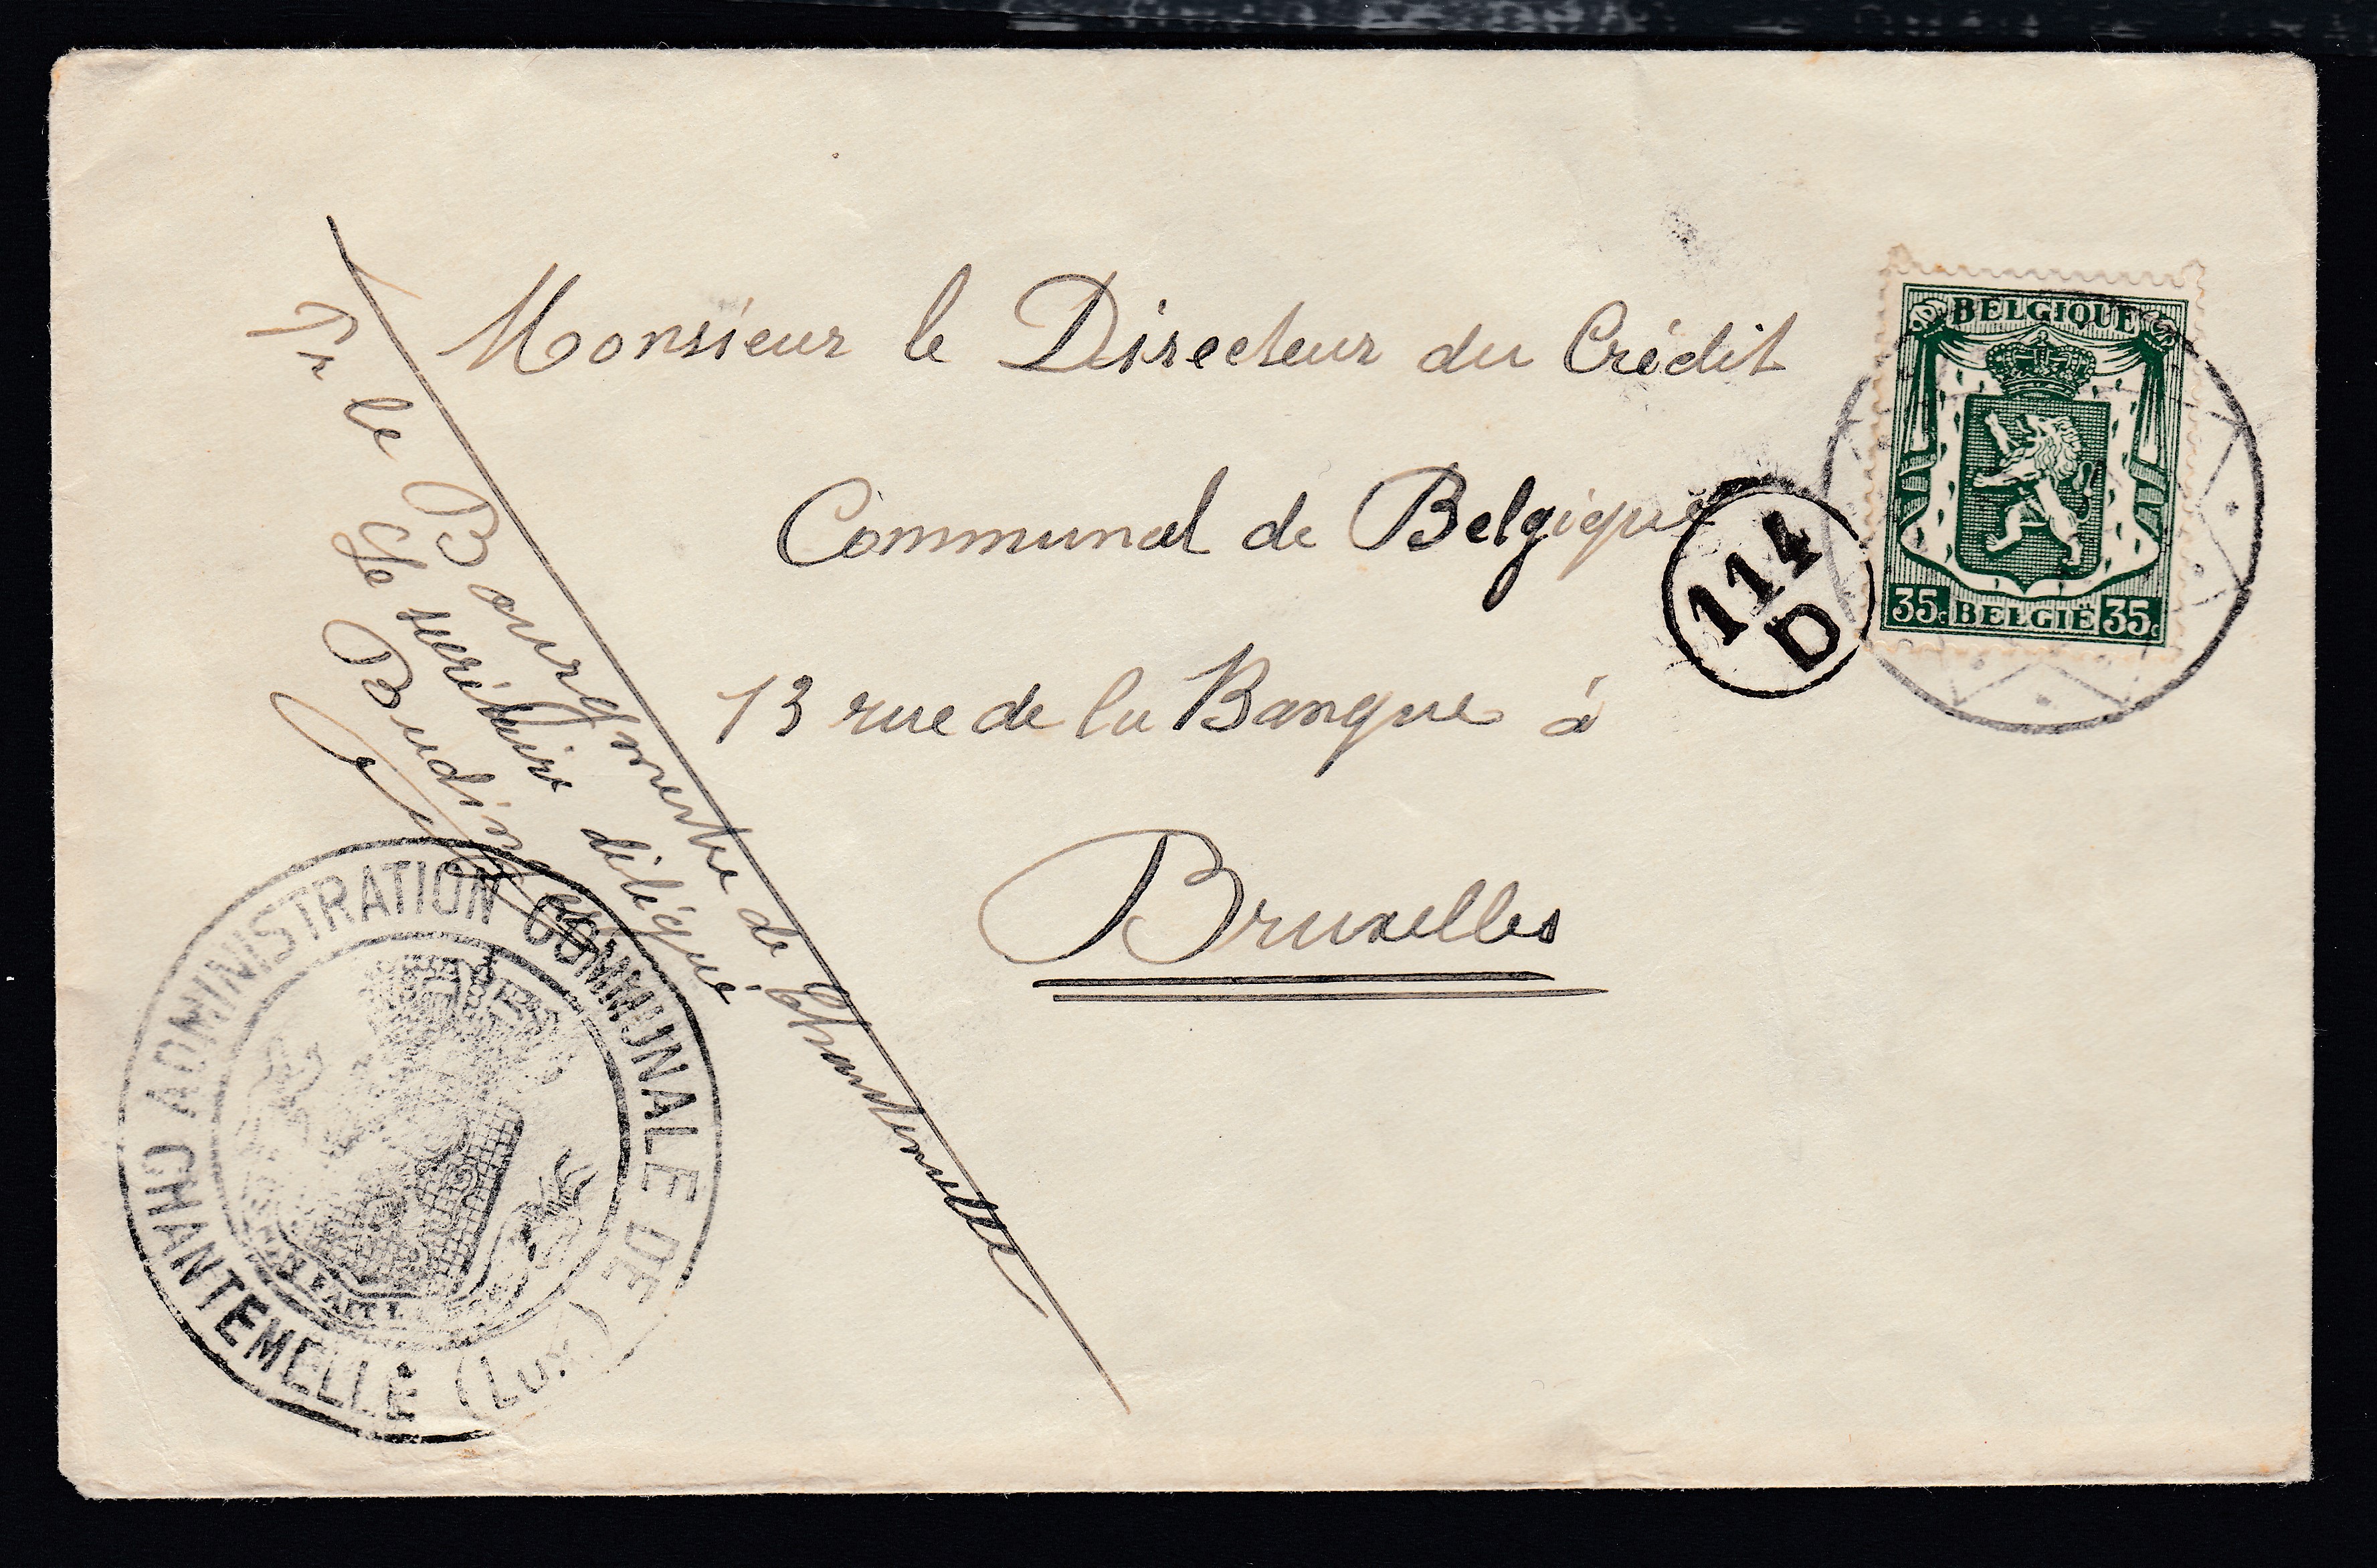 Monsieur le Directeur du Crédit
Communal de Belgique
13 rue de la Banque à
Bruxelles
Pr le Bourgmestre de Chantemelle
Le secrétaire délégué
BELGIQUE
35c BELGIË 35c
114
D
ADMINISTRATION COMMUNALE DE
CHANTEMELLE (Lux.)